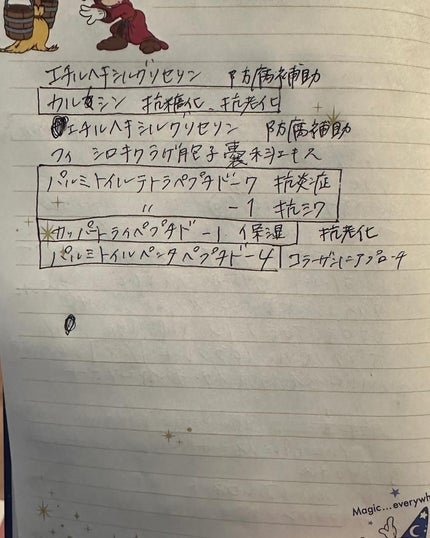 エチルヘキシルグリセリン 防腐補助
カルノシン 抗糖化、抗老化
エチルヘキシルグリセリン 防腐補助
フィ シロキクラゲ胞子嚢科エキス
パルミトイルテトラペプチドー7 抗炎症
〃 -1 抗シワ
カッパートライペプチドー1 保湿 抗老化
パルミトイルペンタペプチドー4 コラーゲンにアプローチ
Magic...everywh